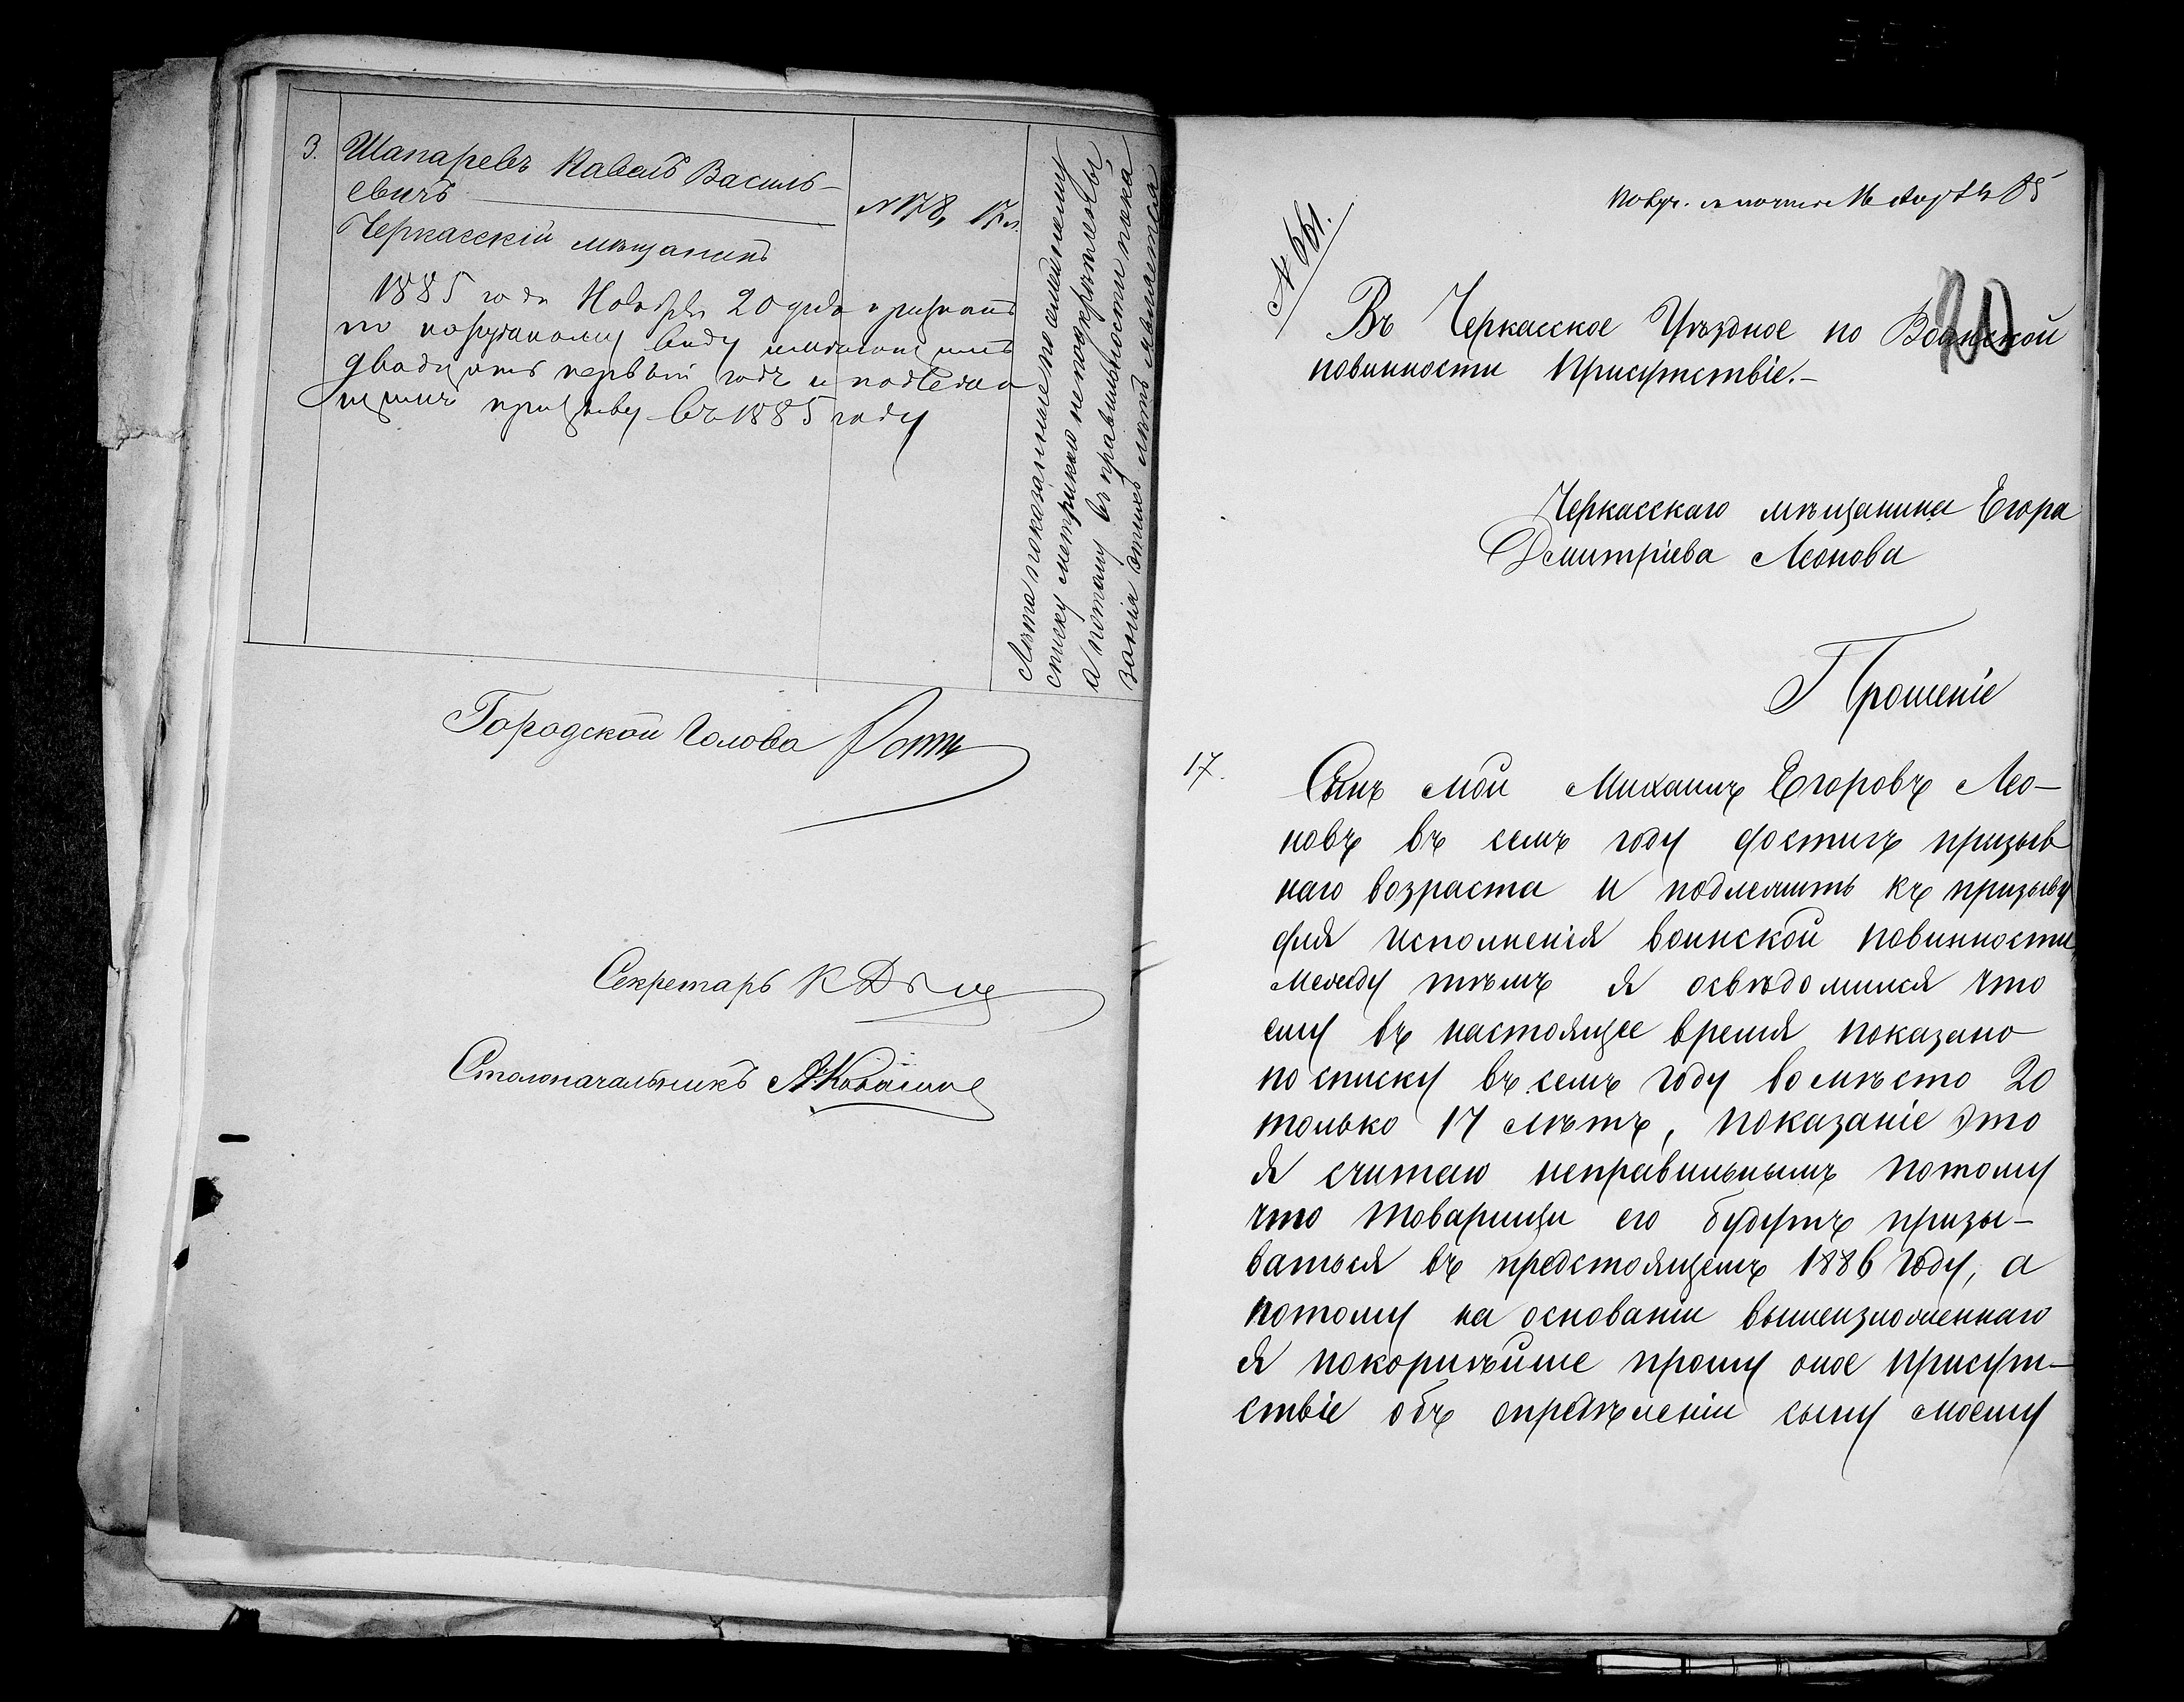 3.
Шапаревъ Павелъ Василь-
евичъ
Черкасскій мѣщанинъ
№ 178, 17 л.
1885 года Ноября 20 дня признанъ
по наружному виду имѣющимъ
двадцать первый годъ и подлежа
щимъ призыву въ 1885 году
Лѣта показанные по семейному
списку метрикою не подкрѣплены
а потому въ правильности пока
занія этихъ лѣтъ является
Городской Голова
Секретарь
Столоначальникъ
№ 661.
20
Въ Черкасское Уѣздное по Воинской
повинности Присутствіе.-
Черкасскаго мѣщанина Егора
Дмитріева Леонова
Прошеніе
17.
Сынъ мой Михаилъ Егоровъ Лео-
новъ въ семъ году достигъ призыв
наго возраста и подлежитъ къ призыву
для исполненія воинской повинности,
между тѣмъ я освѣдомился что
ему въ настоящее время показано
по списку въ семъ году вомѣсто 20
только 17 лѣтъ, показаніе это
я считаю неправильнымъ потому
что товарищи его будутъ призы-
ваться въ предстоящемъ 1886 году, а
потому на основаніи вышеизложеннаго
я покорнѣйше прошу оное присут-
ствіе объ опредѣленіи сыну моему